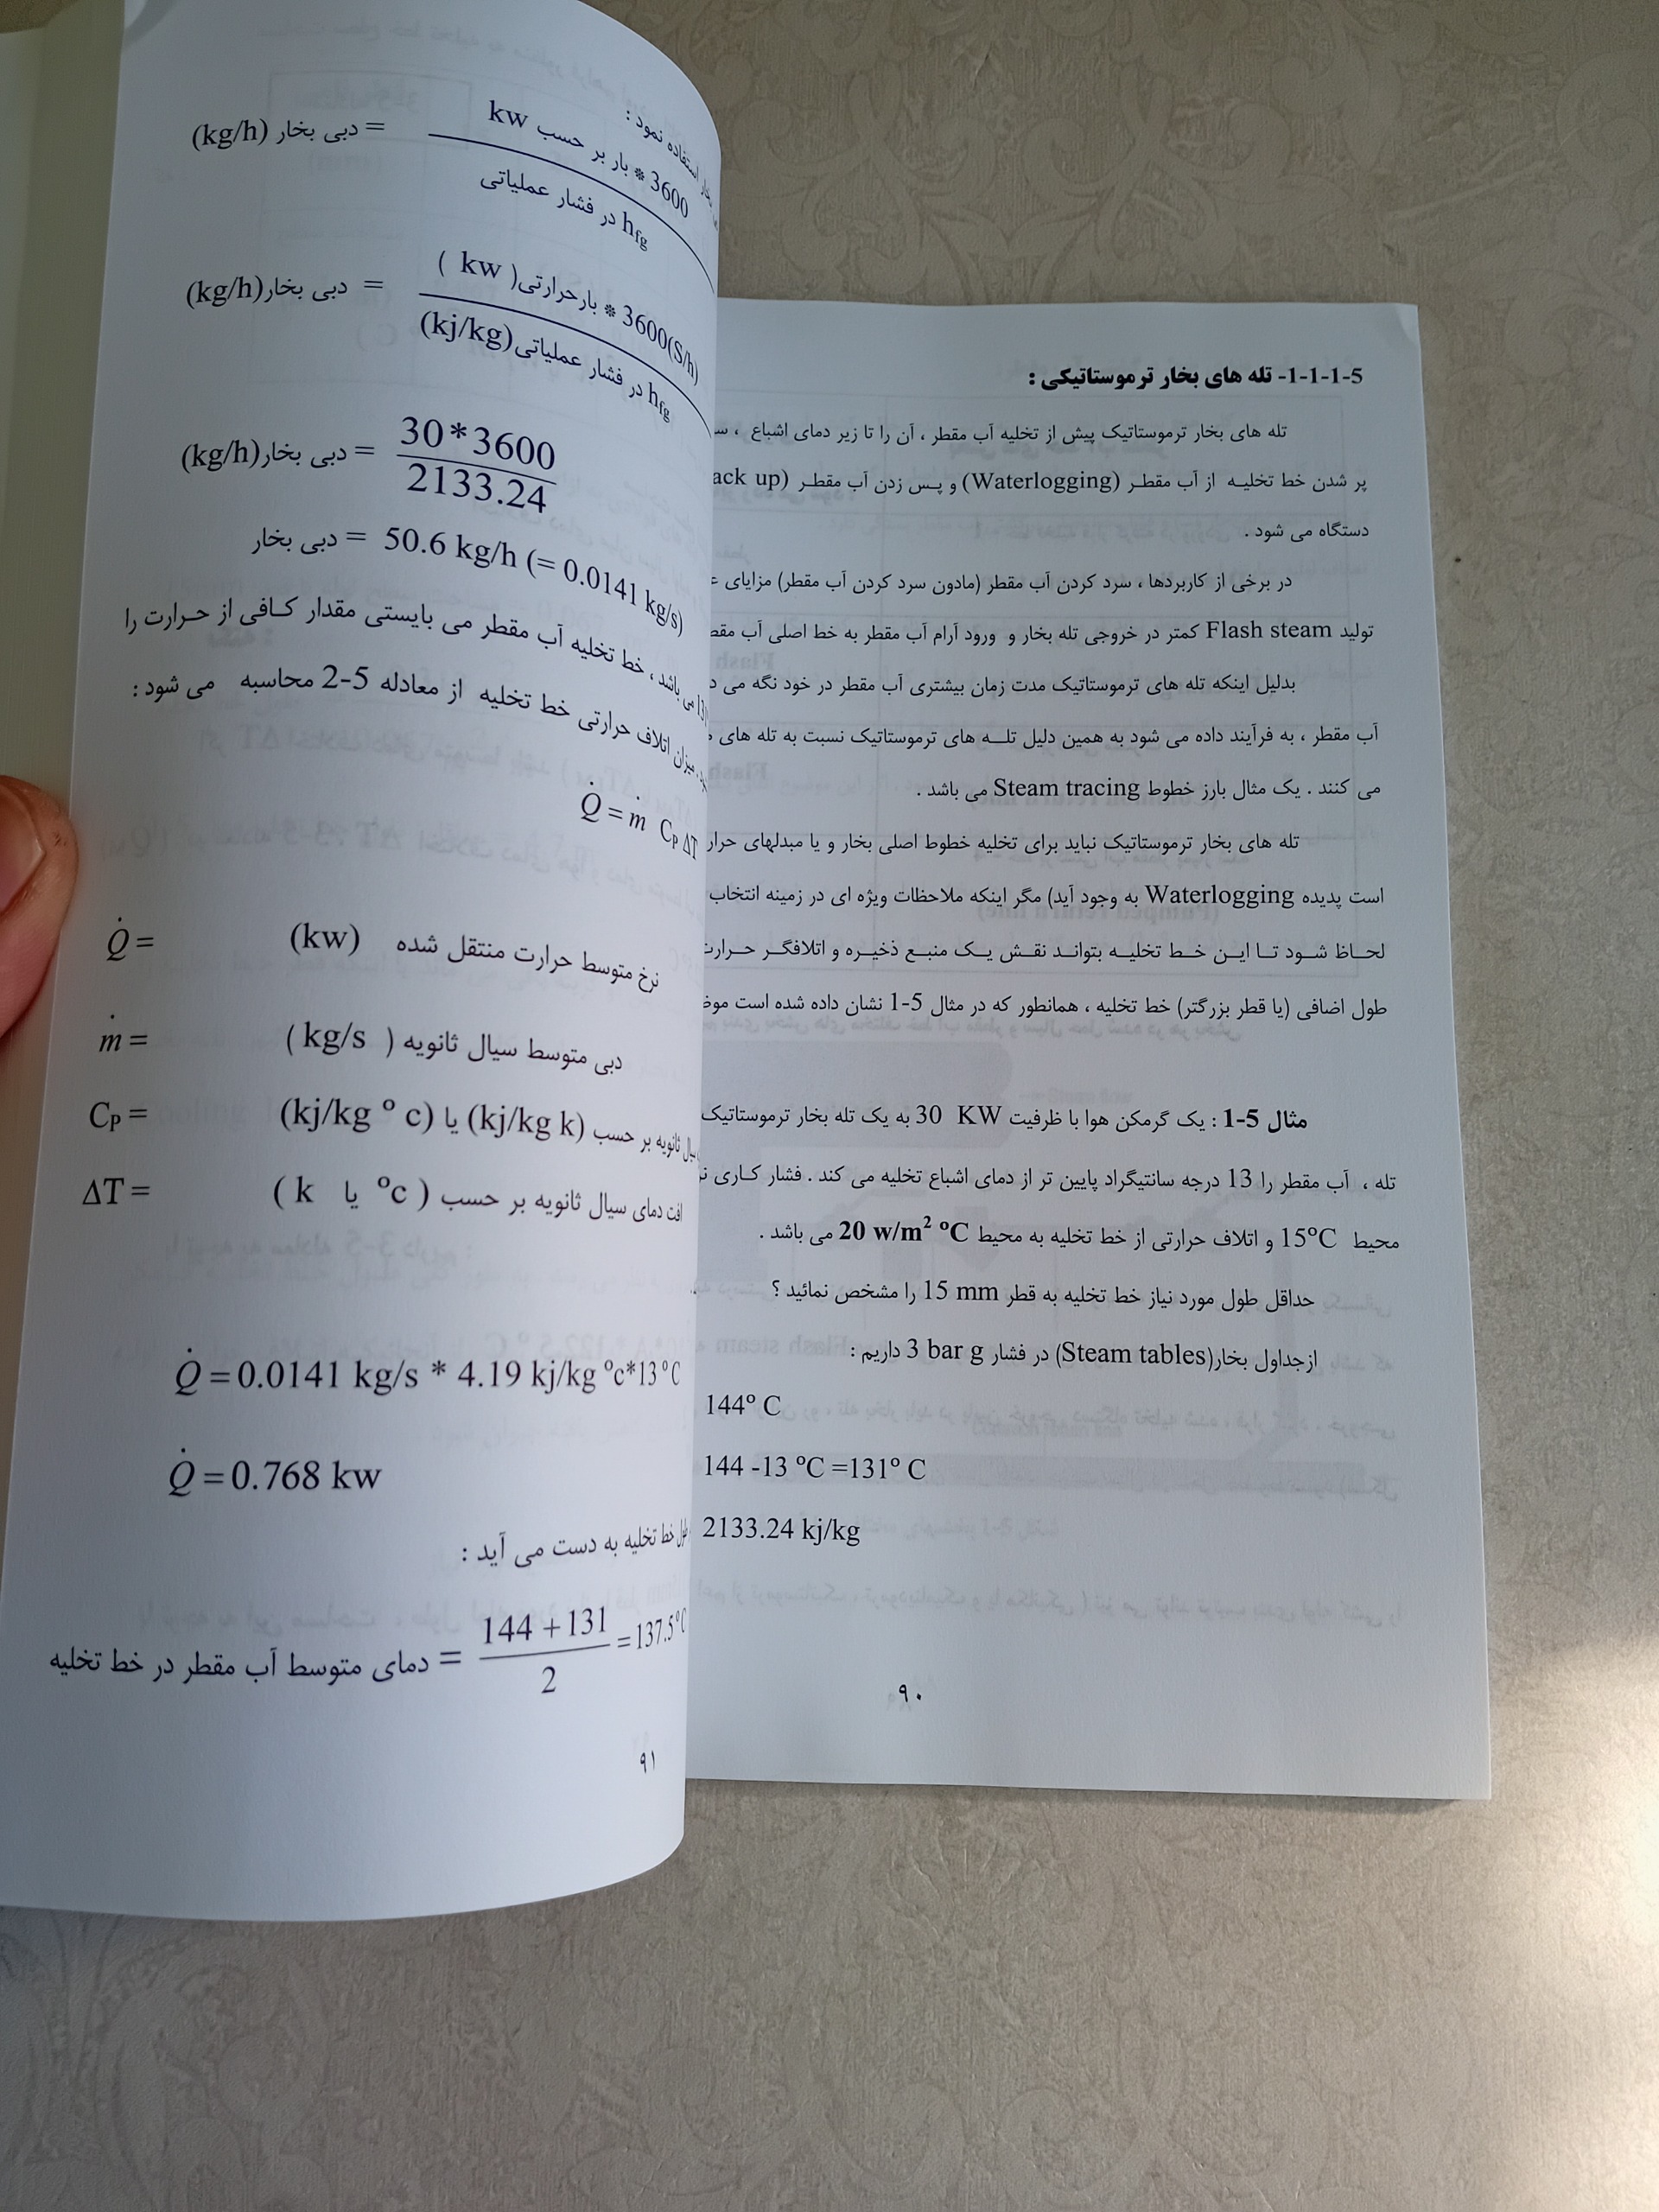 5-1-1-1- تله های بخار ترموستاتیکی :
تله های بخار ترموستاتیک پیش از تخلیه آب مقطر ، آن را تا زیر دمای اشباع ،
پر شدن خط تخلیه از آب مقطر (Waterlogging) و پس زدن آب مقطر (ack up
دستگاه می شود .
در برخی از کاربردها ، سرد کردن آب مقطر (مادون سرد کردن آب مقطر) مزایای
تولید Flash steam کمتر در خروجی تله بخار و ورود آرام آب مقطر به خط اصلی آب
بدلیل اینکه تله های ترموستاتیک مدت زمان بیشتری آب مقطر در خود نگه می
آب مقطر ، به فرآیند داده می شود به همین دلیل تله های ترموستاتیک نسبت به تله های
می کنند . یک مثال بارز خطوط Steam tracing می باشد .
تله های بخار ترموستاتیک نباید برای تخلیه خطوط اصلی بخار و یا مبدلهای
است پدیده Waterlogging به وجود آید) مگر اینکه ملاحظات ویژه ای در زمینه انتخاب
لحاظ شود تا این خط تخلیه بتواند نقش یک منبع ذخیره و اتلافگر
طول اضافی (یا قطر بزرگتر) خط تخلیه ، همانطور که در مثال 5-1 نشان داده شده است
مثال 5-1 : یک گرمکن هوا با ظرفیت 30 KW به یک تله بخار ترموستاتیک
تله ، آب مقطر را 13 درجه سانتیگراد پایین تر از دمای اشباع تخلیه می کند . فشار کاری
محیط 15°C و اتلاف حرارتی از خط تخلیه به محیط 20 w/m² °C می باشد .
حداقل طول مورد نیاز خط تخلیه به قطر 15 mm را مشخص نمائید ؟
ازجداول بخار(Steam tables) در فشار 3 bar g داریم :
144° C
144 -13 °C =131° C
2133.24 kj/kg
۹۰
استفاده نمود :
دبی بخار (kg/h) = 3600 * بار بر حسب kw
h_fg در فشار عملیاتی
دبی بخار(kg/h) = 3600(S/h) * بارحرارتی( kw )
h_fg در فشار عملیاتی(kj/kg)
دبی بخار(kg/h) = 30*3600
2133.24
دبی بخار = 50.6 kg/h (= 0.0141 kg/s)
می باشد ، خط تخلیه آب مقطر می بایستی مقدار کافی از حرارت را
میزان اتلاف حرارتی خط تخلیه از معادله 5-2 محاسبه می شود :
Q̇ = ṁ C_P ΔT
Q̇ = نرخ متوسط حرارت منتقل شده (kw)
ṁ = دبی متوسط سیال ثانویه ( kg/s )
C_P = ثانویه بر حسب (kj/kg k) یا (kj/kg ° c)
ΔT = افت دمای سیال ثانویه بر حسب ( °c یا k )
Q̇ = 0.0141 kg/s * 4.19 kj/kg °c*13°C
Q̇ = 0.768 kw
خط تخلیه به دست می آید :
دمای متوسط آب مقطر در خط تخلیه = 144 + 131 = 137.5°C
2
۹۱